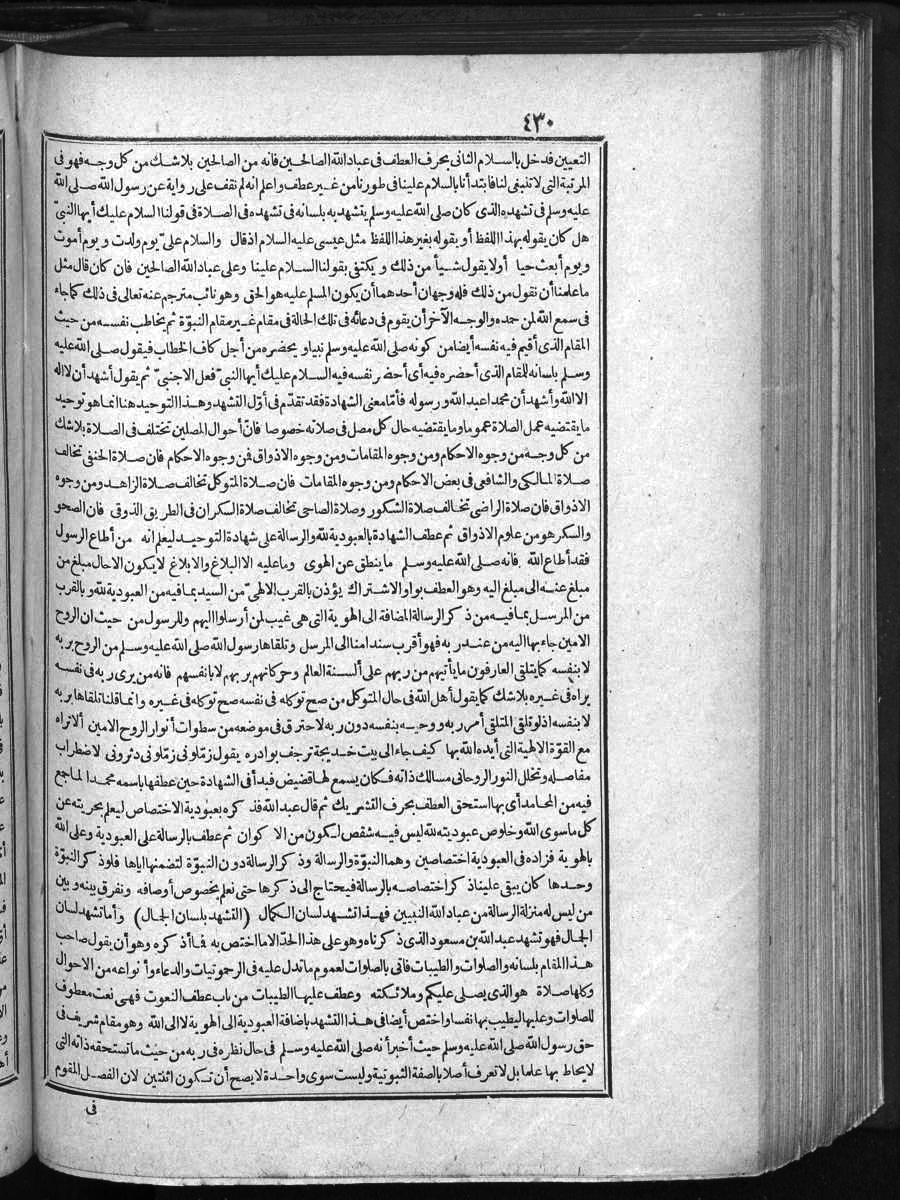 ٤٣٠
التعيين فدخل بالسلام الثانى بحرف العطف فى عباد الله الصالحين فانه من الصالحين بلاشك من كل وجه فهو فى
المرتبة التى لا تنبغى لنا فابتدأنا بالسلام علينا فى طورنا من غير عطف واعلم انه لم نقف على رواية عن رسول الله صلى الله
عليه وسلم فى تشهده الذى كان صلى الله عليه وسلم يتشهد به بلسانه فى تشهده فى الصلاة فى قولنا السلام عليك أيها النبىّ
هل كان يقوله بهذا اللفظ أو يقوله بغير هذا اللفظ مثل عيسى عليه السلام اذ قال والسلام علىّ يوم ولدت و يوم أموت
ويوم أبعث حيا أولا يقول شيأ من ذلك و يكتفى بقولنا السلام علينا وعلى عباد الله الصالحين فان كان قال مثل
ما علمنا أن نقول من ذلك فله وجهان أحدهما أن يكون المسلم عليه هو الحق وهو نائب مترجم عنه تعالى فى ذلك كما جاء
فى سمع الله لمن حمده والوجه الآخر أن يقوم فى دعائه فى تلك الحالة فى مقام غير مقام النبوّة ثم يخاطب نفسه من حيث
المقام الذى أقيم فيه نفسه أيضا من كونه صلى الله عليه وسلم نبيا و يحضره من أجل كاف الخطاب فيقول صلى الله عليه
وسلم بلسانه للمقام الذى أحضره فيه أى أحضر نفسه فيه السلام عليك أيها النبىّ فعل الاجنبىّ ثم يقول أشهد أن لا اله
الا الله وأشهد أن محمدا عبد الله ورسوله فأمّا معنى الشهادة فقد تقدّم فى أوّل التشهد وهذا التوحيد هنا انما هو توحيد
ما يقتضيه عمل الصلاة عموما وما يقتضيه حال كل مصل فى صلاته خصوصا فانّ أحوال المصلين تختلف فى الصلاة بلاشك
من كل وجه من وجوه الاحكام ومن وجوه المقامات ومن وجوه الاذواق فمن وجوه الاحكام فان صلاة الحنفى تخالف
صلاة المالكى والشافعى فى بعض الاحكام ومن وجوه المقامات فان صلاة المتوكل تخالف صلاة الزاهد ومن وجوه
الاذواق فان صلاة الراضى تخالف صلاة الشكور وصلاة الصاحى تخالف صلاة السكران فى الطريق الذوقى فان الصحو
والسكر هو من علوم الاذواق ثم عطف الشهادة بالعبودية لله والرسالة على شهادة التوحيد ليعلم انه من أطاع الرسول
فقد أطاع الله فانه صلى الله عليه وسلم ما ينطق عن الهوى وما عليه الا البلاغ والابلاغ لا يكون الاحال مبلغ من
مبلغ عنه الى مبلغ اليه وهو العطف بواو الاشتراك يؤذن بالقرب الالهىّ من السيد بما فيه من العبودية لله و بالقرب
من المرسل بما فيه من ذكر الرسالة المضافة الى الهوية التى هى غيب لمن أرسلوا اليهم وللرسول من حيث ان الروح
الامين جاء بها اليه من عند ربه فهو أقرب سندا منا الى المرسل وتلقاها رسول الله صلى الله عليه وسلم من الروح بربه
لا بنفسه كما يتلقى العارفون ما يأتيهم من ربهم على ألسنة العالم وحركاتهم بربهم لا بانفسهم فانه من يرى ربه فى نفسه
يراه فى غيره بلاشك كما يقول أهل الله فى حال المتوكل من صح توكله فى نفسه صح توكله فى غيره وانما قلنا تلقاها بربه
لا بنفسه اذ لو تلقى المتلقى أمر ربه ووحيه بنفسه دون ربه لاحترق فى موضعه من سطوات أنوار الروح الامين ألا تراه
مع القوّة الالهية التى أيده الله بها كيف جاء الى بيت خديجة ترجف بوادره يقول زمّلونى زمّلونى دثرونى لاضطراب
مفاصله وتخلل النور الروحانى مسالك ذاته فكان يسمع لها قضيض فبدأ فى الشهادة حين عطفها باسمه محمد الما جمع
فيه من المحامد أى بها استحق العطف بحرف التشريك ثم قال عبد الله فذكره بعبودية الاختصاص ليعلم بحريته عن
كل ما سوى الله وخلوص عبوديته لله ليس فيه شقص لكون من الاكوان ثم عطف بالرسالة على العبودية وعلى الله
بالهوية فزاده فى العبودية اختصاصين وهما النبوّة والرسالة وذكر الرسالة دون النبوّة لتضمنها اياها فلو ذكر النبوّة
وحدها كان يبقى علينا ذكر اختصاصه بالرسالة فيحتاج الى ذكرها حتى نعلم بخصوص أوصافه ونفرق بينه وبين
من ليس له منزلة الرسالة من عباد الله النبيين فهذا تشهد لسان الكمال (التشهد بلسان الجمال) وأما تشهد لسان
الجمال فهو تشهد عبد الله بن مسعود الذى ذكرناه وهو على هذا الحدّ الا ما اختص به فما أذكره وهو أن يقول صاحب
هذا المقام بلسانه والصلوات والطيبات فاتى بالصلوات لعموم ما تدل عليه فى الرحموتيات والدعاء وأنواعه من الاحوال
وكلها صلاة هو الذى يصلى عليكم وملائكته وعطف عليها الطيبات من باب عطف النعوت فهى نعت معطوف
للصلوات وعليها ليطيب بها نفسا واختص أيضا فى هذا التشهد باضافة العبودية الى الهوية لا الى الله وهو مقام شريف فى
حق رسول الله صلى الله عليه وسلم حيث أخبر أنه صلى الله عليه وسلم فى حال نظره فى ربه من حيث ما تستحقه ذاته التى
لا يحاط بها علما بل لا تعرف أصلا بالصفة الثبوتية وليست سوى واحدة لا يصح أن تكون اثنتين لان الفصل المقوم
فى